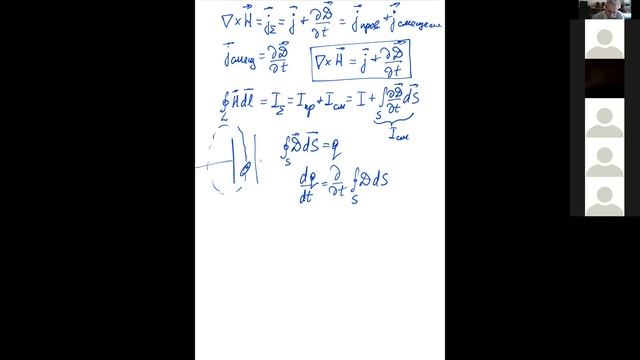 ∇×H⃗ = j⃗_Σ = j⃗ + ∂D⃗/∂t = j⃗_пров. + j⃗_смещение
j⃗_смещ = ∂D⃗/∂t    ∇×H⃗ = j⃗ + ∂D⃗/∂t
∮_L H⃗ dl⃗ = I_Σ = I_пр + I_см = I + ∫_S ∂D⃗/∂t dS⃗
I_см
∮_S D⃗ dS⃗ = q
dq/dt = ∂/∂t ∮_S D dS